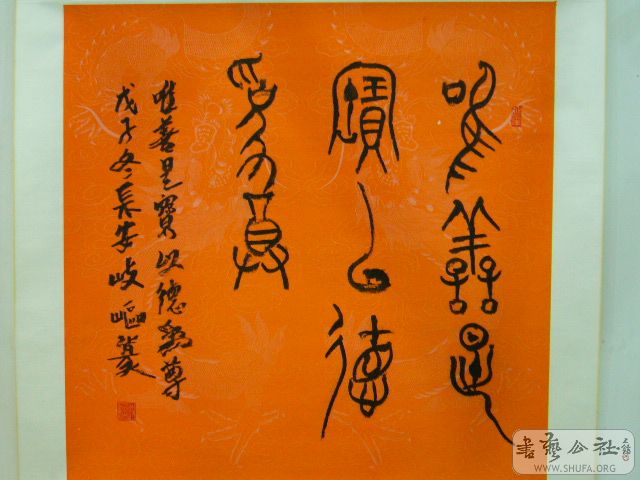 唯善是
寶以德
為尊
唯善是寶以德為尊
戊子冬長安岐嶇篆
書藝公社
WWW.SHUFA.ORG